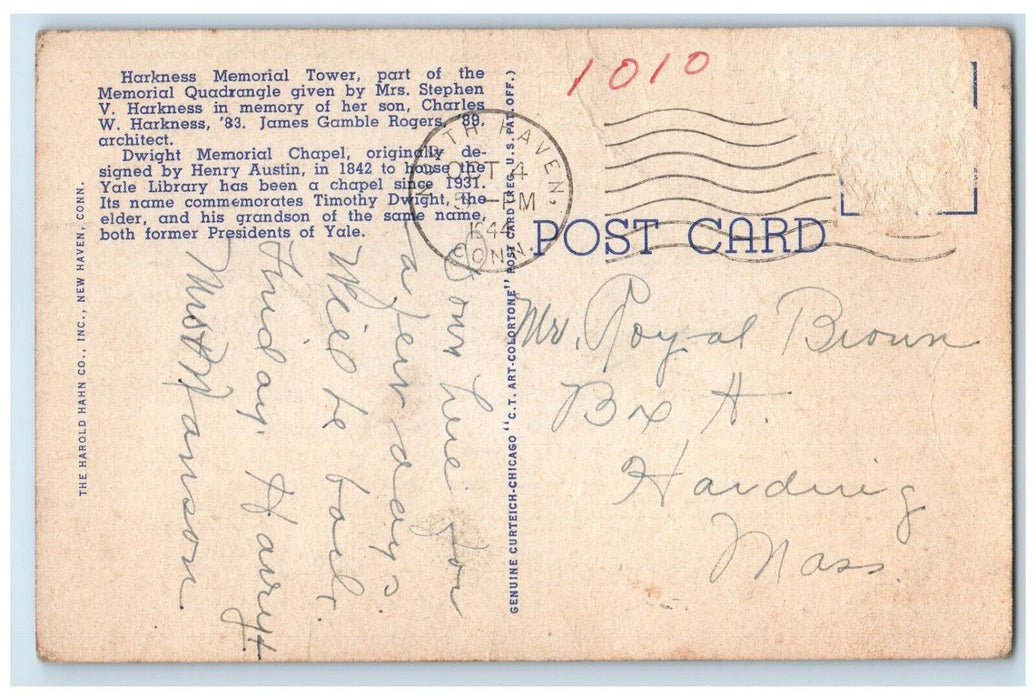 Harkness Memorial Tower, part of the
Memorial Quadrangle given by Mrs. Stephen
V. Harkness in memory of her son, Charles
W. Harkness, '83. James Gamble Rogers, '89,
architect.
Dwight Memorial Chapel, originally de-
signed by Henry Austin, in 1842 to house the
Yale Library has been a chapel since 1931.
Its name commemorates Timothy Dwight, the
elder, and his grandson of the same name,
both former Presidents of Yale.
THE HAROLD HAHN CO., INC., NEW HAVEN, CONN.
GENUINE CURTEICH-CHICAGO "C.T. ART-COLORTONE" POST CARD (REG. U.S. PAT. OFF.)
1010
NORTH HAVEN,
OCT 4
5 - PM
1944
CONN.
POST CARD
Mr. Royal Brown
Bx A.
Harding
Mass.
here for
a few days.
Will be back
Friday. Harry +